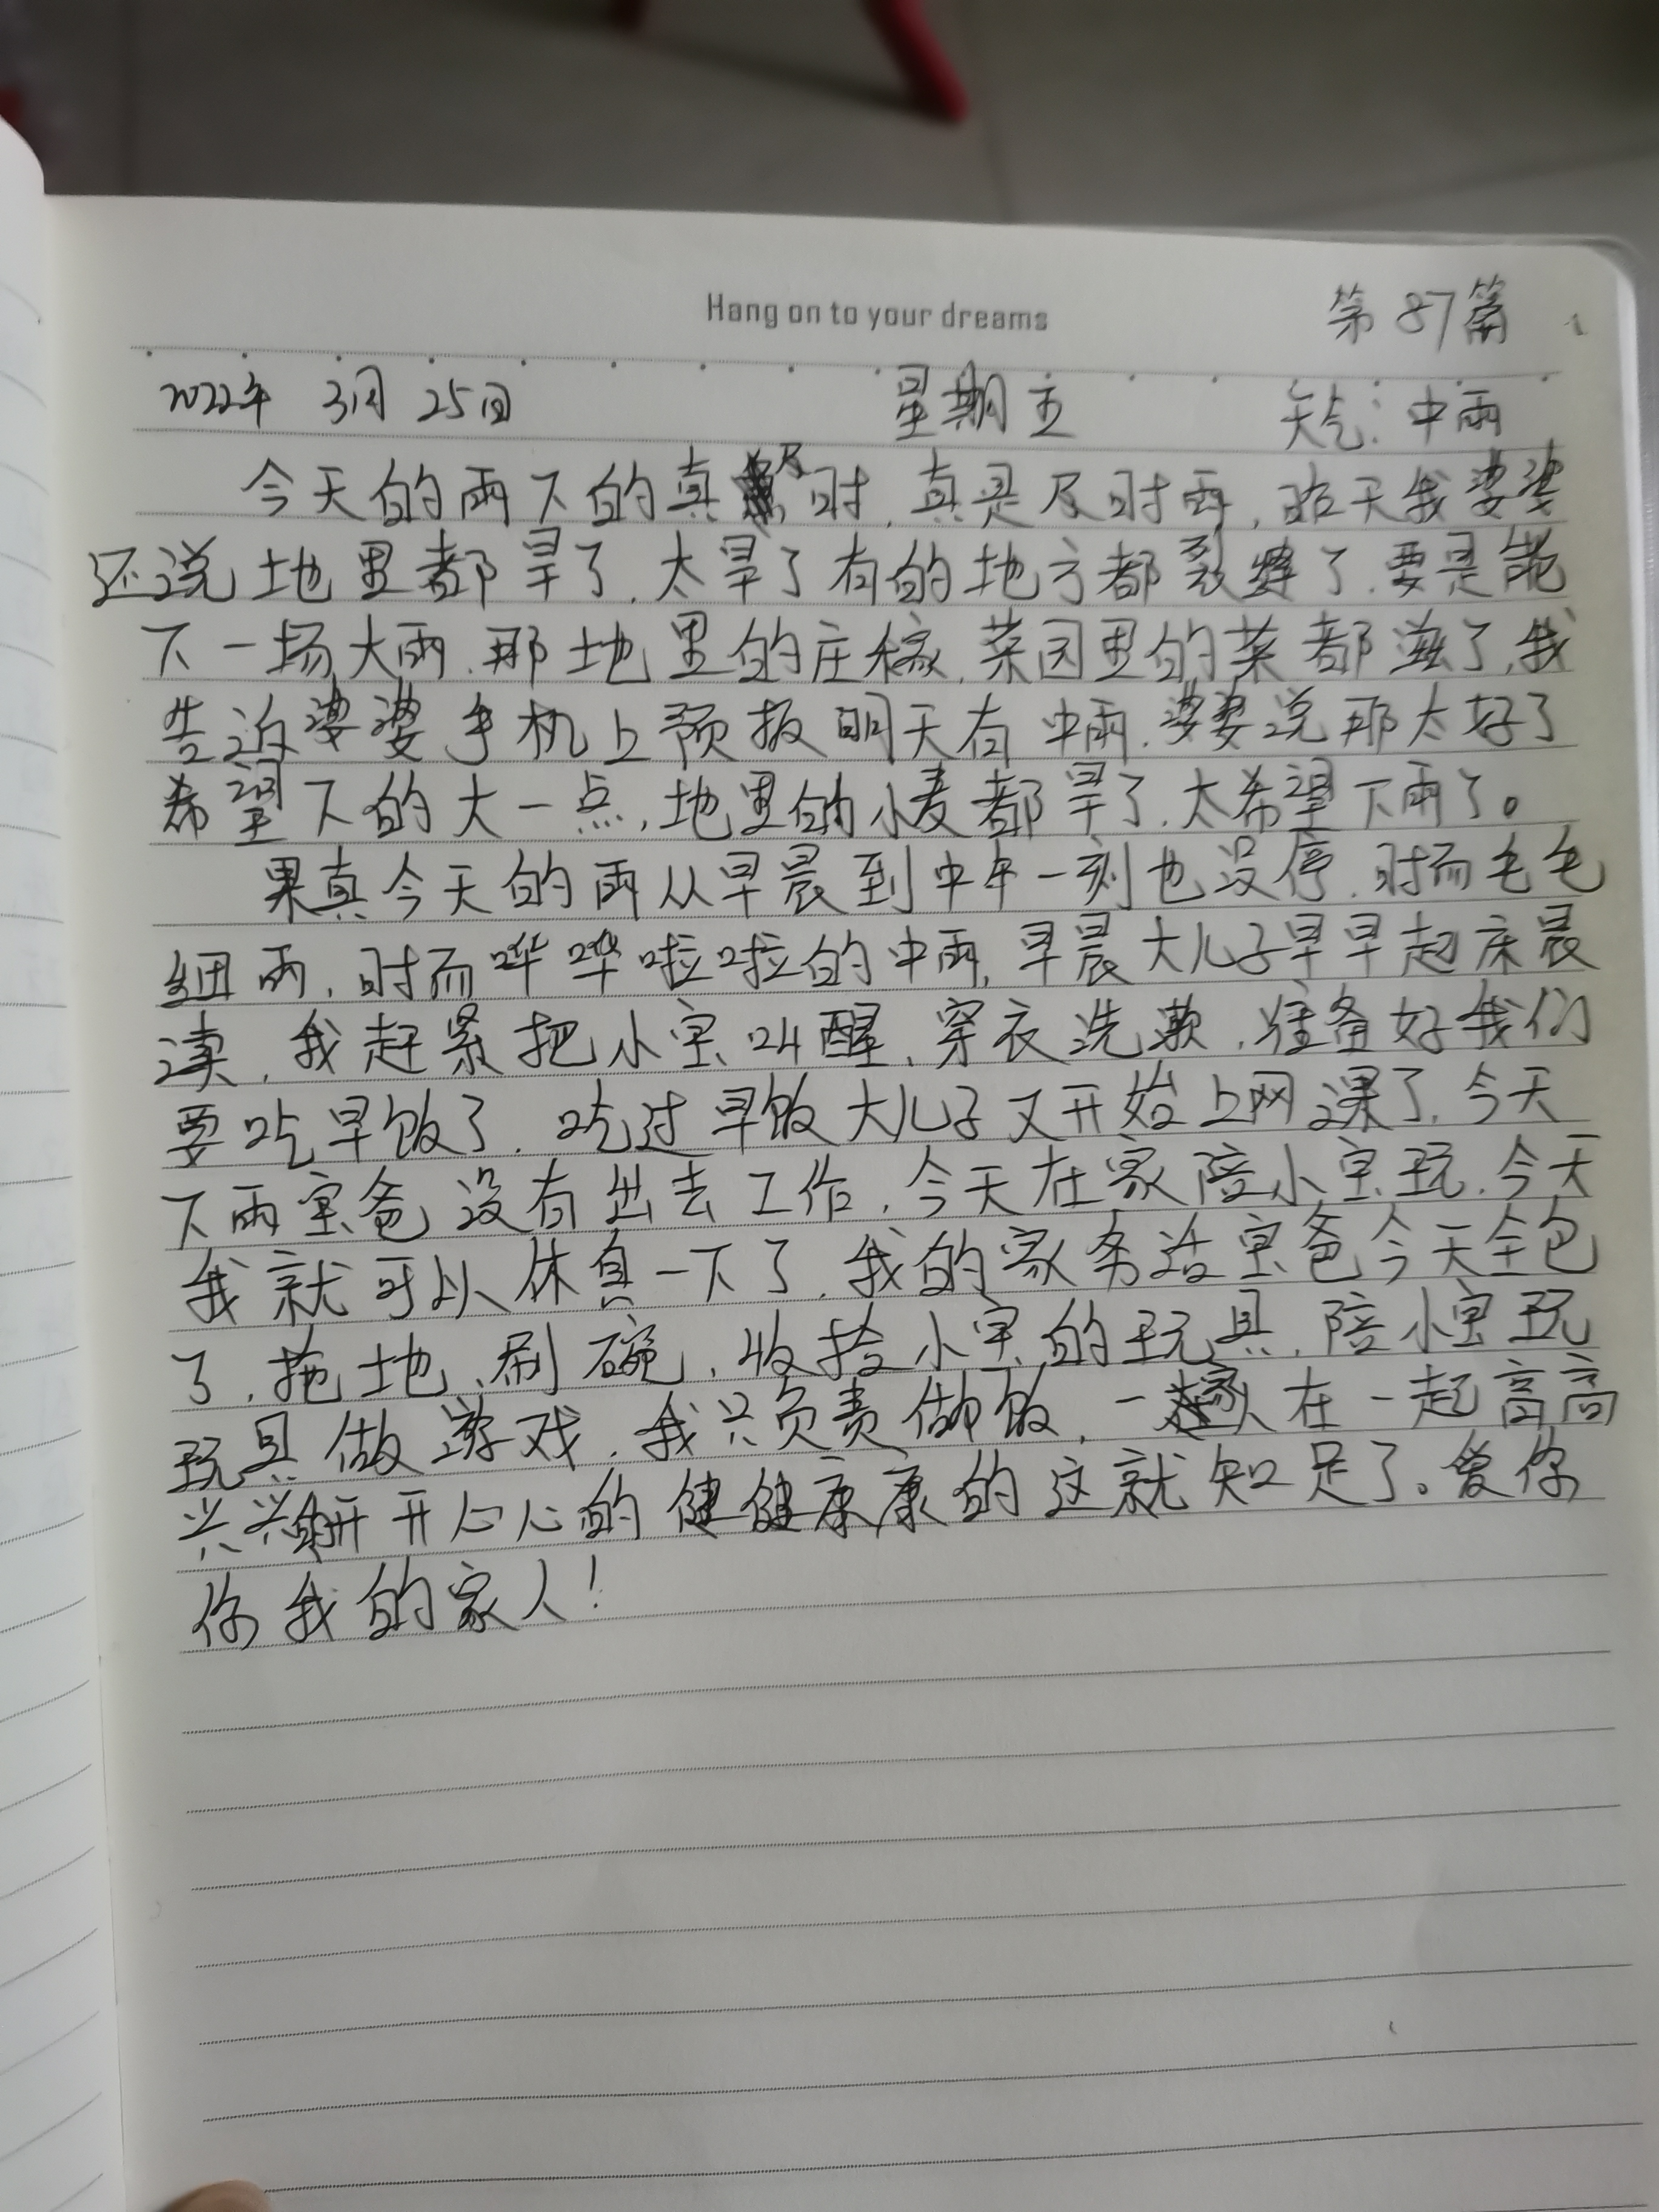 Hang on to your dreams
第87篇
2022年 3月 25日 星期五 天气:中雨
今天的雨下的真及时,真是及时雨,昨天我婆婆
还说地里都旱了,太旱了有的地方都裂了,要是能
下一场大雨,那地里的庄稼,菜园里的菜都滋了,我
告诉婆婆手机上预报明天有中雨,婆婆说那太好了
希望下的大一点,地里的小麦都旱了,太希望下雨了。
果真今天的雨从早晨到中午一刻也没停,时而毛毛
细雨,时而哗哗啦啦的中雨,早晨大儿子早早起床晨
读,我赶紧把小宝叫醒,穿衣洗漱,准备好我们
要吃早饭了,吃过早饭大儿子又开始上网课了,今天
下雨宝爸没有出去工作,今天在家陪小宝玩,今天
我就可以休息一下了,我的家务活宝爸今天全包
了,拖地、刷碗,收拾小宝的玩具,陪小宝玩
玩具做游戏,我只负责做饭,一家人在一起高高
兴兴开开心心的健健康康的这就知足了。爱你
你我的家人!